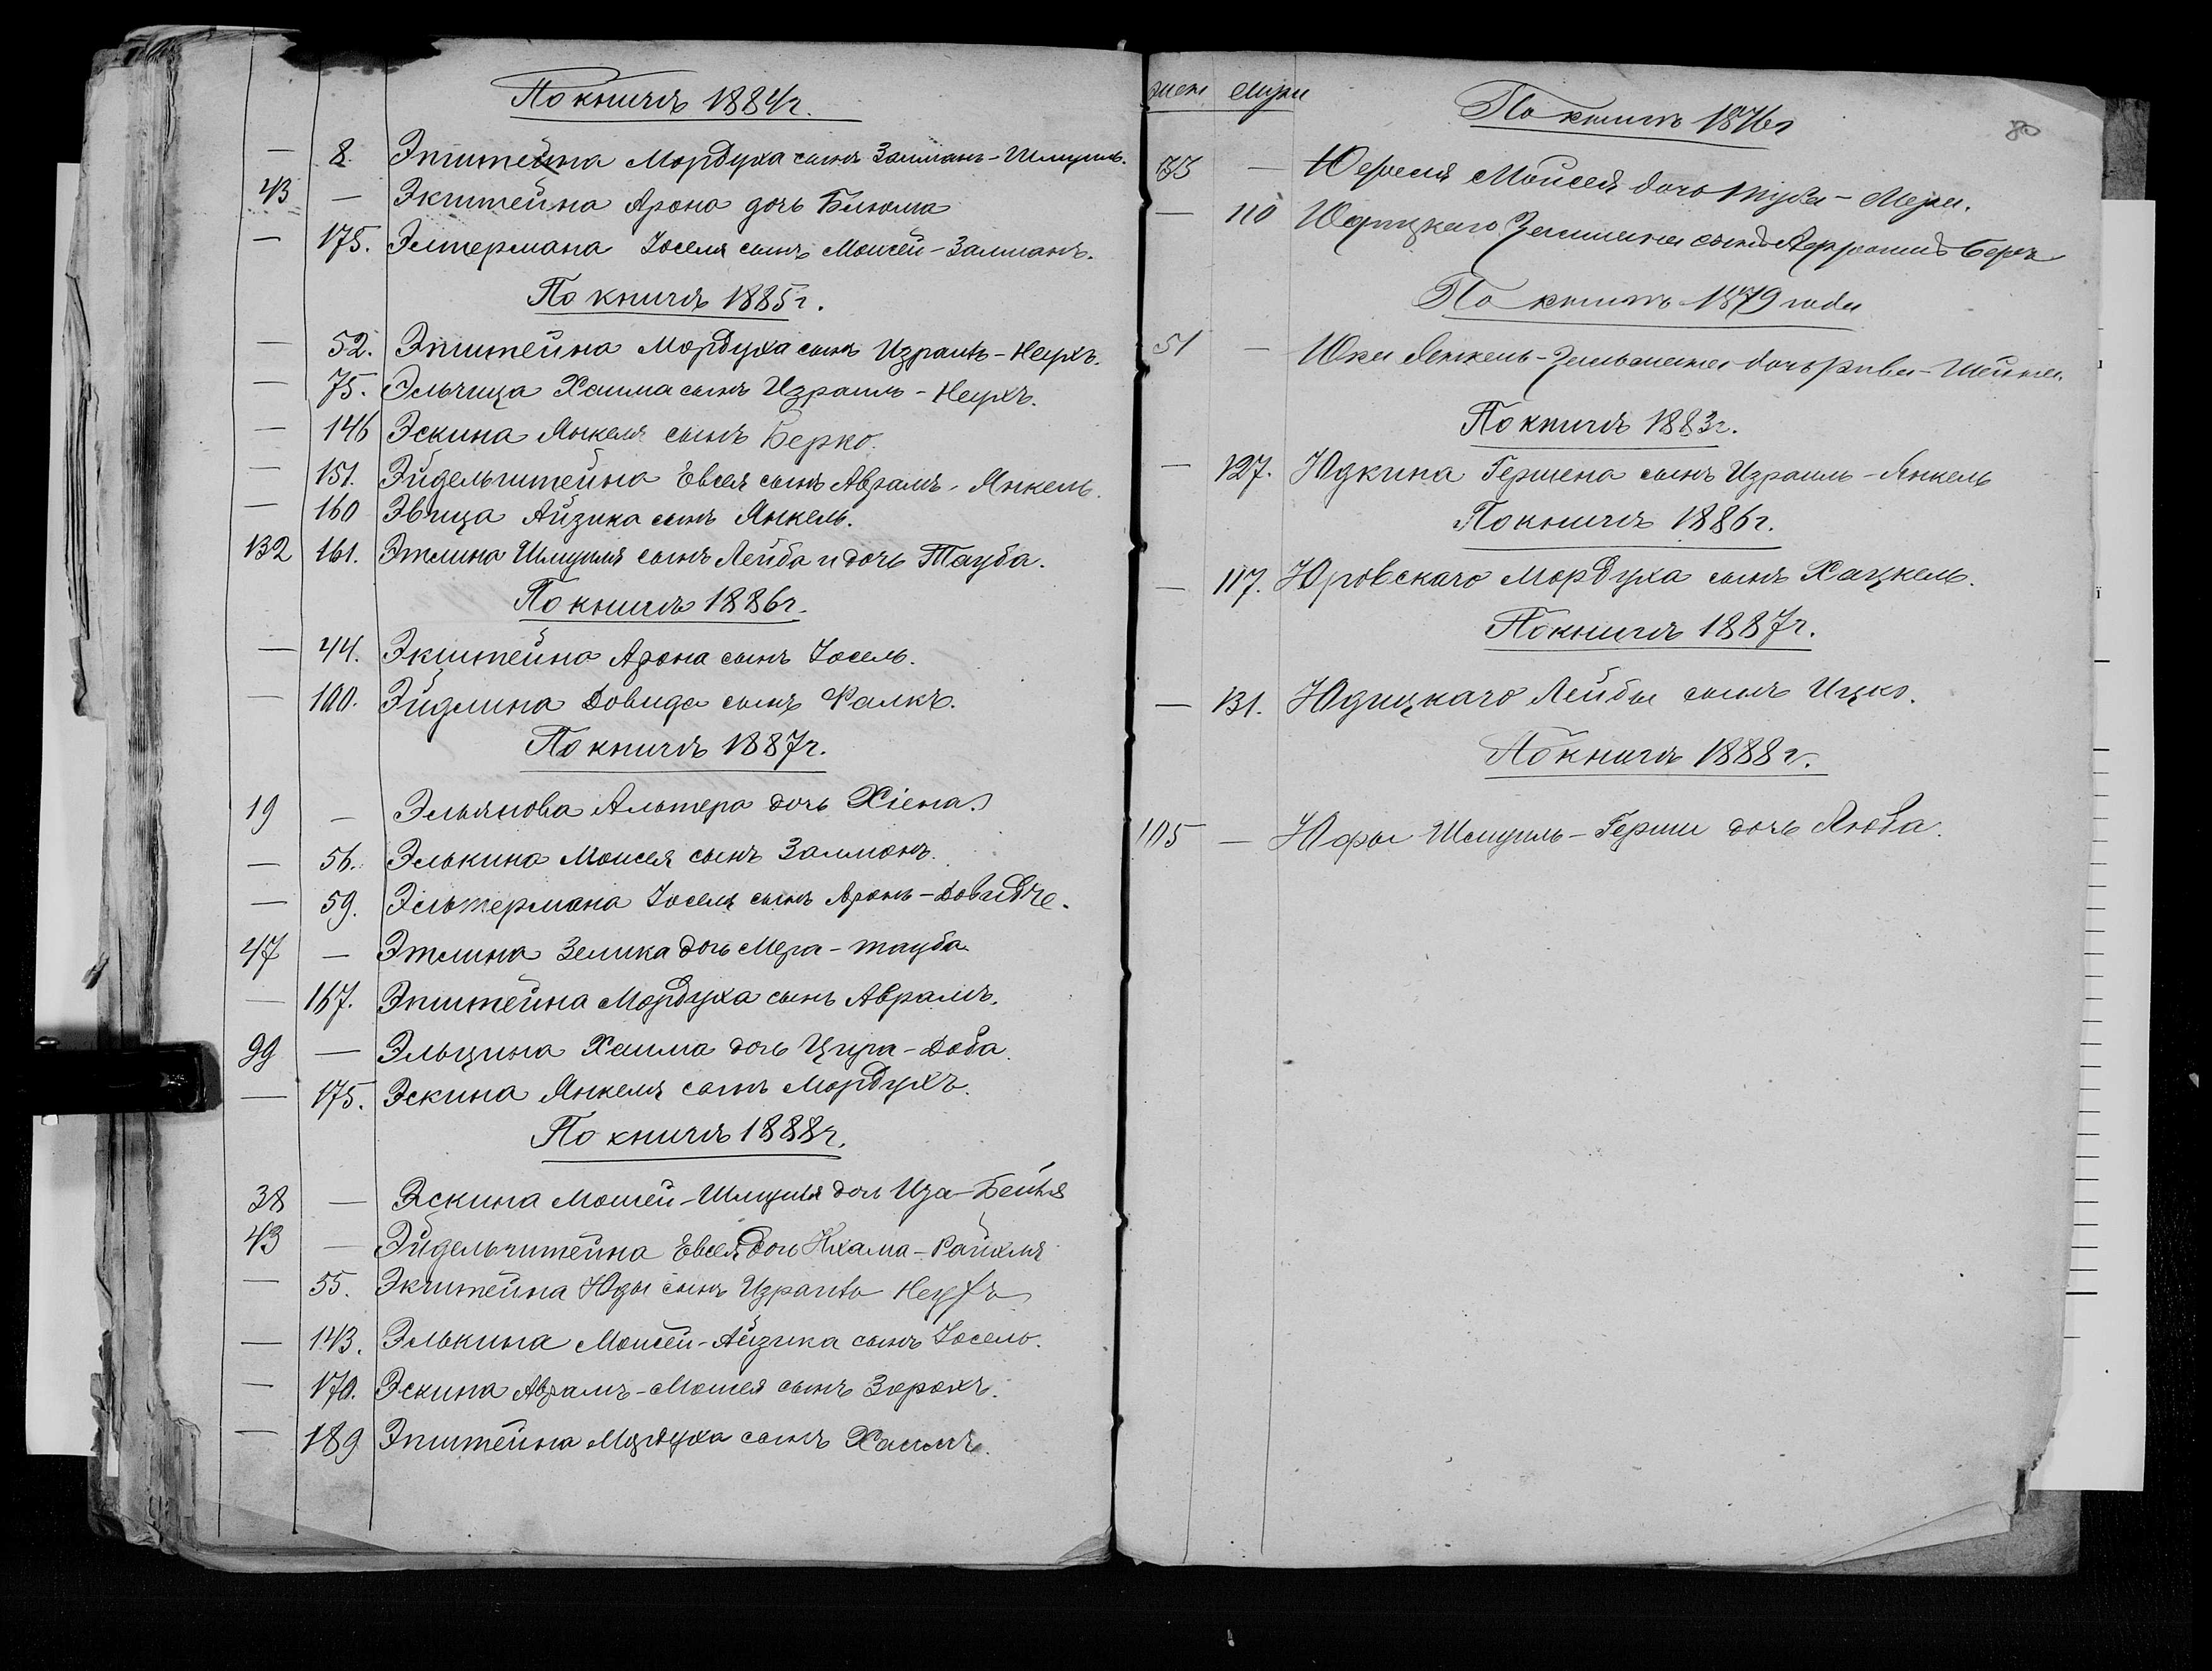 По книгѣ 1884 г.
— 8. Эпштейна Мордуха сынъ Залманъ-Шмуилъ.
43 — Экштейна Арона дочь Блюма
— 175. Элтермана Іоселя сынъ Мойсей-Залманъ.
По книгѣ 1885 г.
— 52. Эпштейна Мордуха сынъ Израиль-Неухъ.
— 75. Эльчица Хаима сынъ Израиль-Неухъ.
— 146 Эскина Янкеля сынъ Берко.
— 151. Эйдельштейна Евсея сынъ Абрамъ-Янкель.
— 160 Эвица Айзика сынъ Янкель.
132 161. Этлина Шмуиля сынъ Лейба и дочь Тауба.
По книгѣ 1886 г.
— 44. Экштейна Арона сынъ Іосель.
— 100. Эйдлина Довида сынъ Фалкъ.
По книгѣ 1887 г.
19 — Эльянова Альтера дочь Хіена
— 56. Элькина Моисея сынъ Залманъ.
— 59. Эльтермана Іоселя сынъ Аронъ-
47 — Этлина Зелика дочь Мера-тауба
— 167. Эпштейна Мордуха сынъ Абрамъ.
99 — Эльцина Хаима дочь Цира-Доба.
— 175. Эскина Янкеля сынъ Мордухъ.
По книгѣ 1888 г.
38 — Эскина Мовшей-Шмуиля дочь Иза-Бейля
43 — Эйдельштейна Евсея дочь
— 55. Экштейна Юды сынъ Израиль Неухъ
— 143. Элькина Моисей-Айзика сынъ Іосель.
— 170. Эскина Абрамъ-Мовшея сынъ Зорохъ.
— 189 Эпштейна Мордуха сынъ Хаимъ.
женс мужс
По книгѣ 1876 г
80
33 — Моисея дочь Туба-Мера.
— 110 Юдицкаго Залмана сынъ Беръ
По книгѣ 1879 года
51 — Янкель-Зельмана дочь Рива-Шейна.
По книгѣ 1883 г.
— 127. Юдкина Гершена сынъ Израиль-Янкель
По книгѣ 1886 г.
— 117. Юровскаго Мордуха сынъ Хацкель.
По книгѣ 1887 г.
— 131. Юдицкаго Лейбы сынъ Ицко.
По книгѣ 1888 г.
105 — Юфы Шмуиль-Герши дочь Люба.